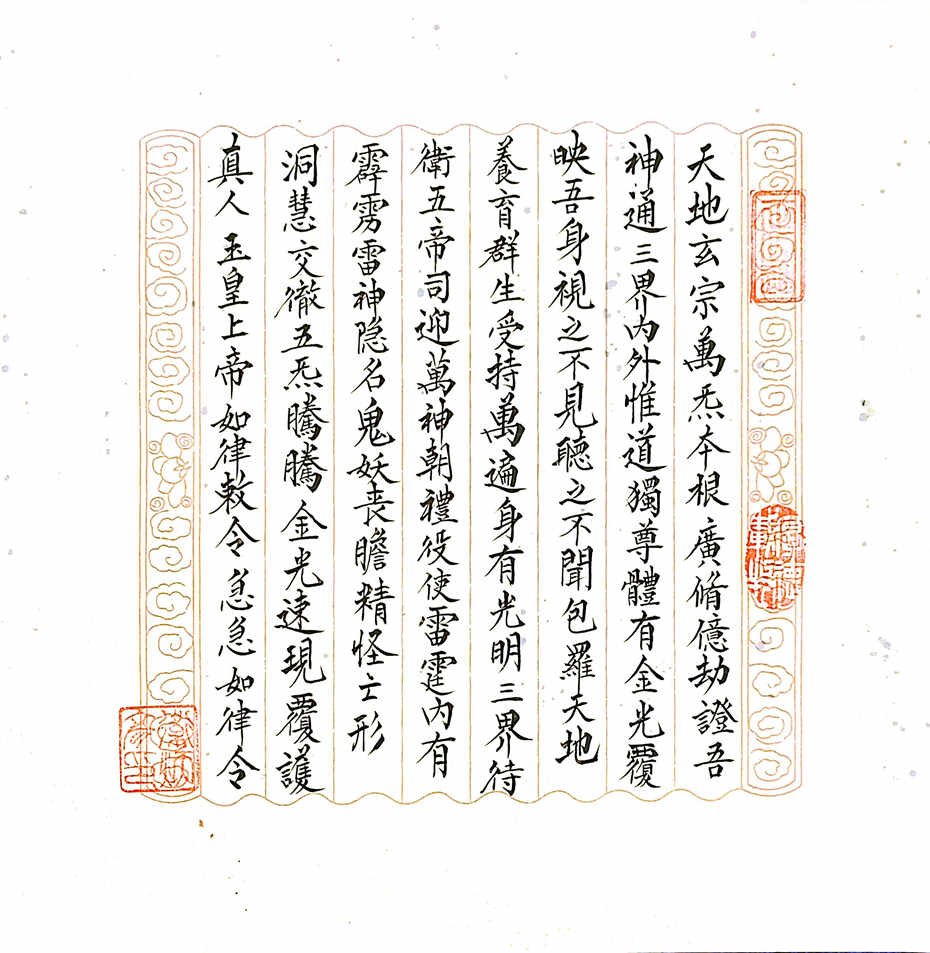 天地玄宗萬炁本根廣脩億劫證吾
神通三界內外惟道獨尊體有金光覆
映吾身視之不見聽之不聞包羅天地
養育群生受持萬遍身有光明三界待
衛五帝司迎萬神朝禮役使雷霆內有
霹雳雷神隐名鬼妖丧膽精怪亡形
洞慧交徹五炁騰騰金光速現覆護
真人玉皇上帝如律敕令急急如律令